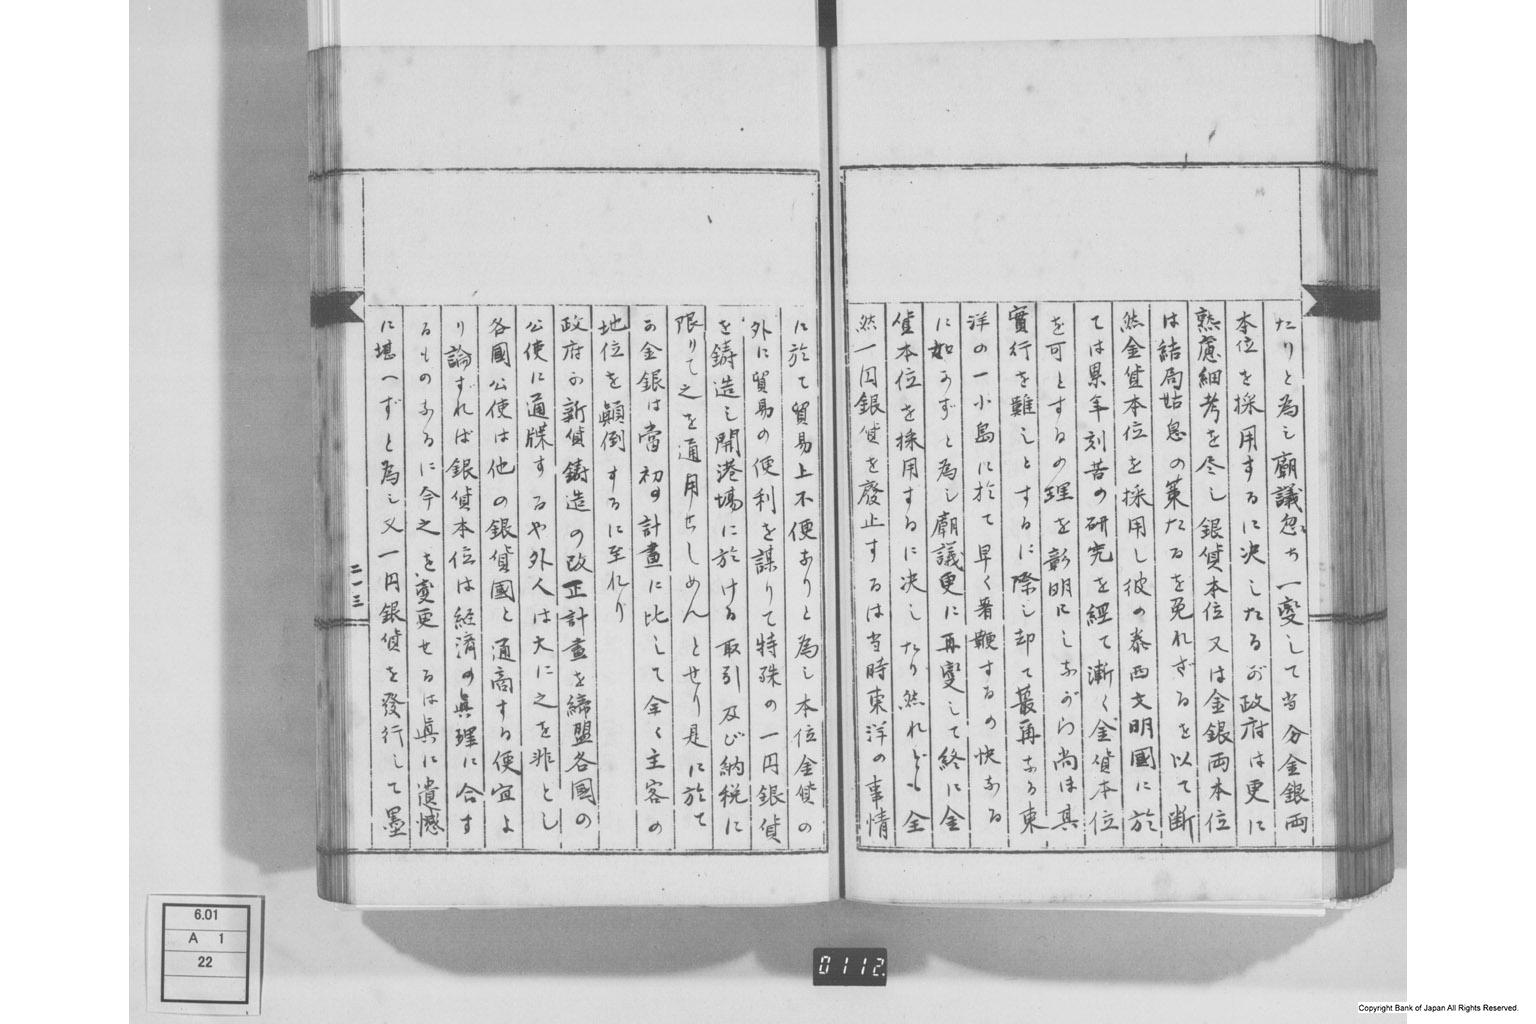 たりと為し廟議忽ち一變して当分金銀両
本位を採用するに決したるが政府は更に
熟慮細考を尽し銀貨本位又は金銀両本位
は結局姑息の策たるを免れざるを以て断
然金貨本位を採用し彼の泰西文明國に於
ては累年刻苦の研究を經て漸く金貨本位
を可とするの理を彰明にしながら尚ほ其
實行を難しとするに際し却て最再なる東
洋の一小島に於て早く著鞭するの快なる
に如かずと為し廟議更に再變して終に金
貨本位を採用するに决したり然れども全
然一円銀貨を廢止するは当時東洋の事情
に於て貿易上不便ありと為し本位金貨の
外に貿易の便利を謀りて特殊の一円銀貨
を鋳造し開港場に於ける取引及び納税に
限りて之を通用せしめんとせり是に於て
か金銀は當初の計畫に比して全く主客の
地位を顚倒するに至れり
政府が新貨鋳造の改正計畫を締盟各國の
公使に通牒するや外人は大に之を非とし
各國公使は他の銀貨國と通商する便宜よ
り論ずれば銀貨本位は経済の眞理に合す
るものなるに今之を変更せるは眞に遺憾
に堪へずと為し又一円銀貨を發行して墨
二一三
6.01
A 1
22
0112.
Copyright Bank of Japan All Rights Reserved.